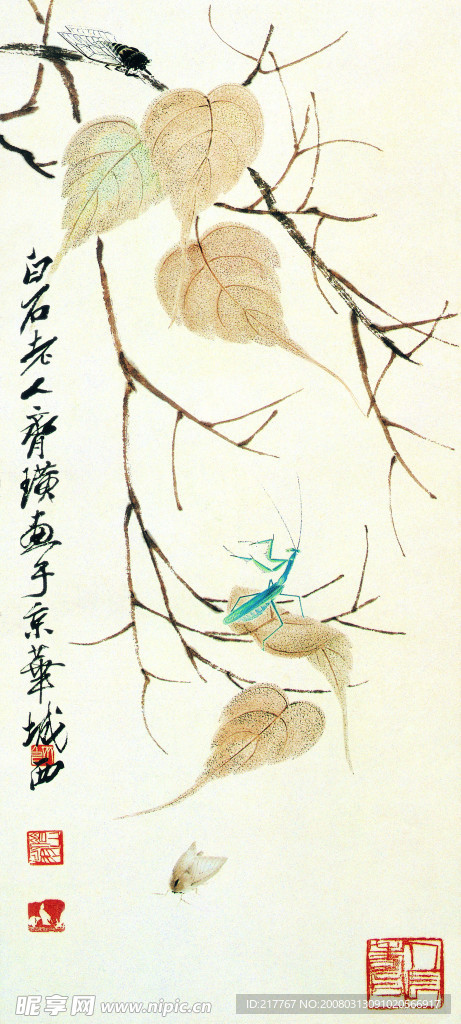 白石老人齊璜画于京華城西
昵享网 www.nipic.cn
ID:217767 NO:20080313091020566917